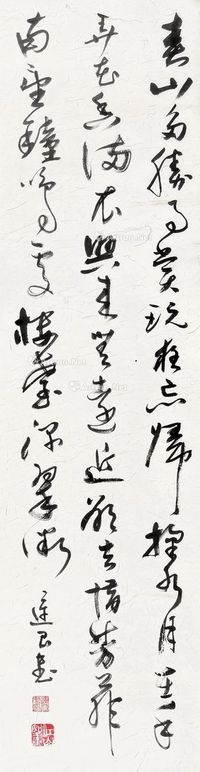 春山多勝事賞玩夜忘歸掬水月在手
弄花香滿衣興來無遠近欲去惜芳菲
南望鐘鳴處樓臺深翠微